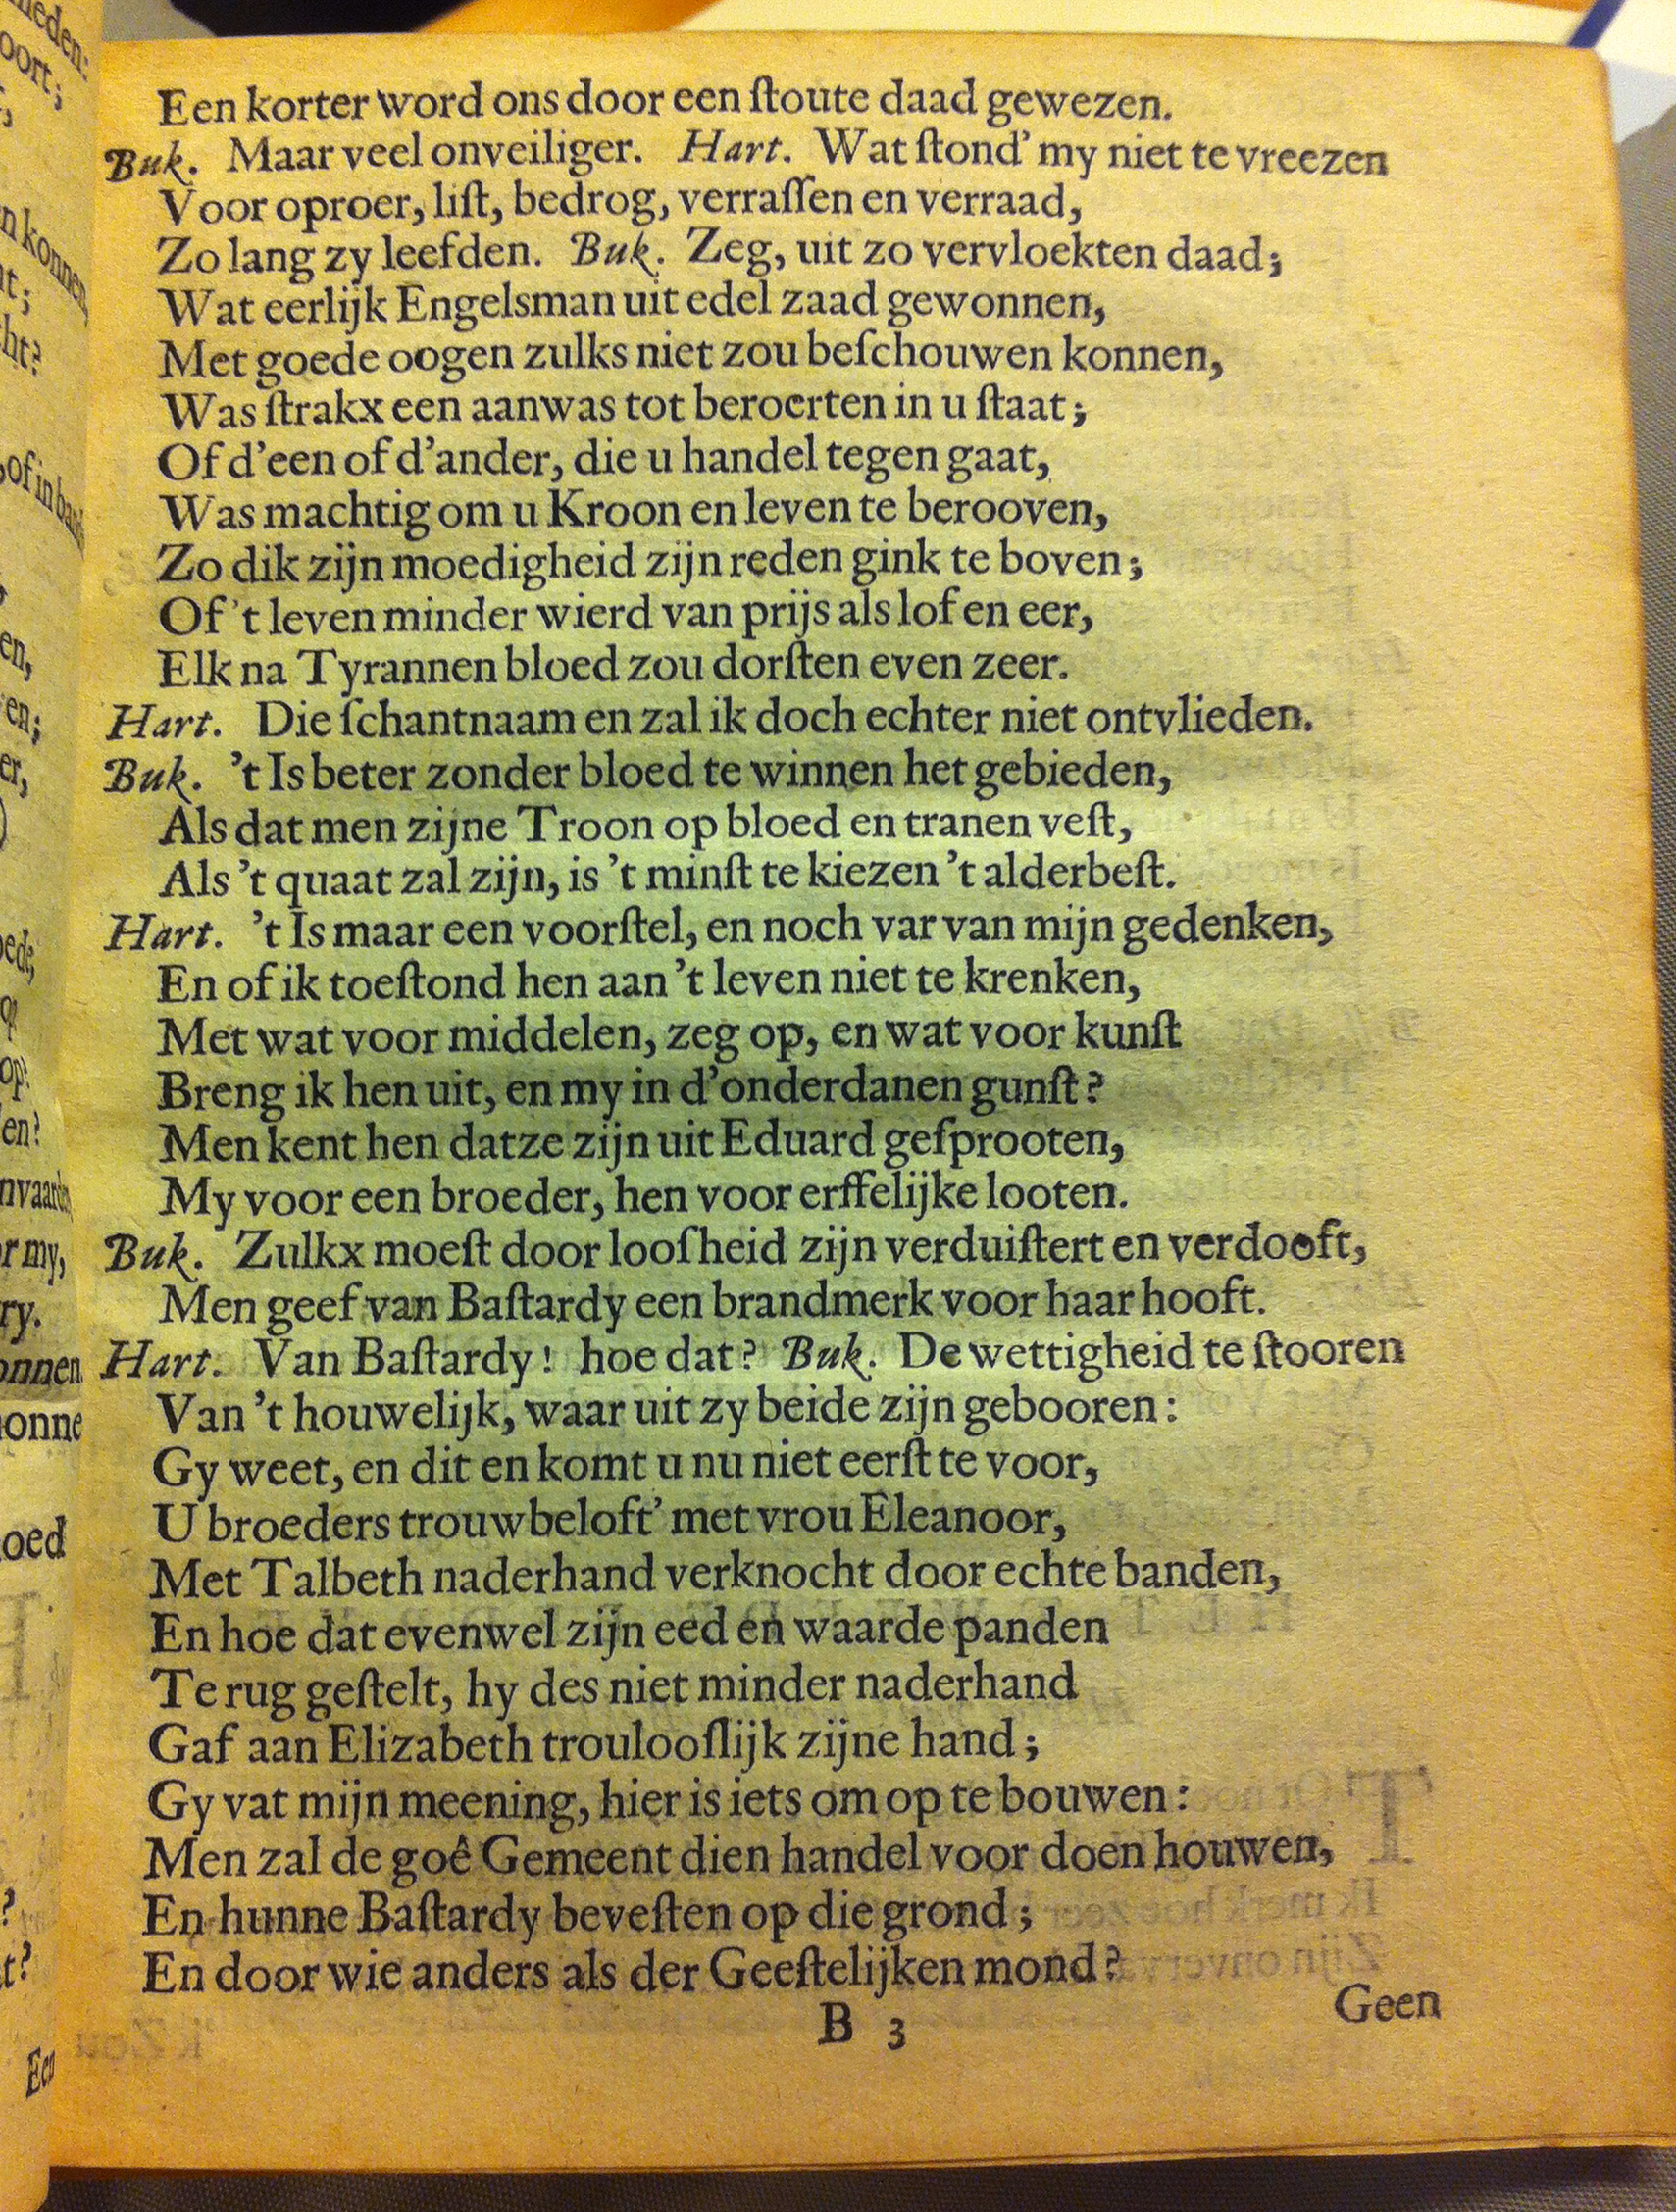 Een korter word ons door een ſtoute daad gewezen.
Buk. Maar veel onveiliger. Hart. Wat ſtond' my niet te vreezen
Voor oproer, liſt, bedrog, verraſſen en verraad,
Zo lang zy leefden. Buk. Zeg, uit zo vervloekten daad;
Wat eerlijk Engelsman uit edel zaad gewonnen,
Met goede oogen zulks niet zou beſchouwen konnen,
Was ſtrakx een aanwas tot beroerten in u ſtaat;
Of d'een of d'ander, die u handel tegen gaat,
Was machtig om u Kroon en leven te berooven,
Zo dik zijn moedigheid zijn reden gink te boven;
Of 't leven minder wierd van prijs als lof en eer,
Elk na Tyrannen bloed zou dorſten even zeer.
Hart. Die ſchantnaam en zal ik doch echter niet ontvlieden.
Buk. 't Is beter zonder bloed te winnen het gebieden,
Als dat men zijne Troon op bloed en tranen veſt,
Als 't quaat zal zijn, is 't minſt te kiezen 't alderbeſt.
Hart. 't Is maar een voorſtel, en noch var van mijn gedenken,
En of ik toeſtond hen aan 't leven niet te krenken,
Met wat voor middelen, zeg op, en wat voor kunſt
Breng ik hen uit, en my in d'onderdanen gunſt?
Men kent hen datze zijn uit Eduard geſprooten,
My voor een broeder, hen voor erffelijke looten.
Buk. Zulkx moeſt door looſheid zijn verduiſtert en verdooft,
Men geef van Baſtardy een brandmerk voor haar hooft.
Hart. Van Baſtardy! hoe dat? Buk. De wettigheid te ſtooren
Van 't houwelijk, waar uit zy beide zijn gebooren:
Gy weet, en dit en komt u nu niet eerſt te voor,
U broeders trouwbeloft' met vrou Eleanoor,
Met Talbeth naderhand verknocht door echte banden,
En hoe dat evenwel zijn eed en waarde panden
Te rug geſtelt, hy des niet minder naderhand
Gaf aan Elizabeth troulooſlijk zijne hand;
Gy vat mijn meening, hier is iets om op te bouwen:
Men zal de goê Gemeent dien handel voor doen houwen,
En hunne Baſtardy beveſten op die grond;
En door wie anders als der Geeſtelijken mond?
B 3
Geen